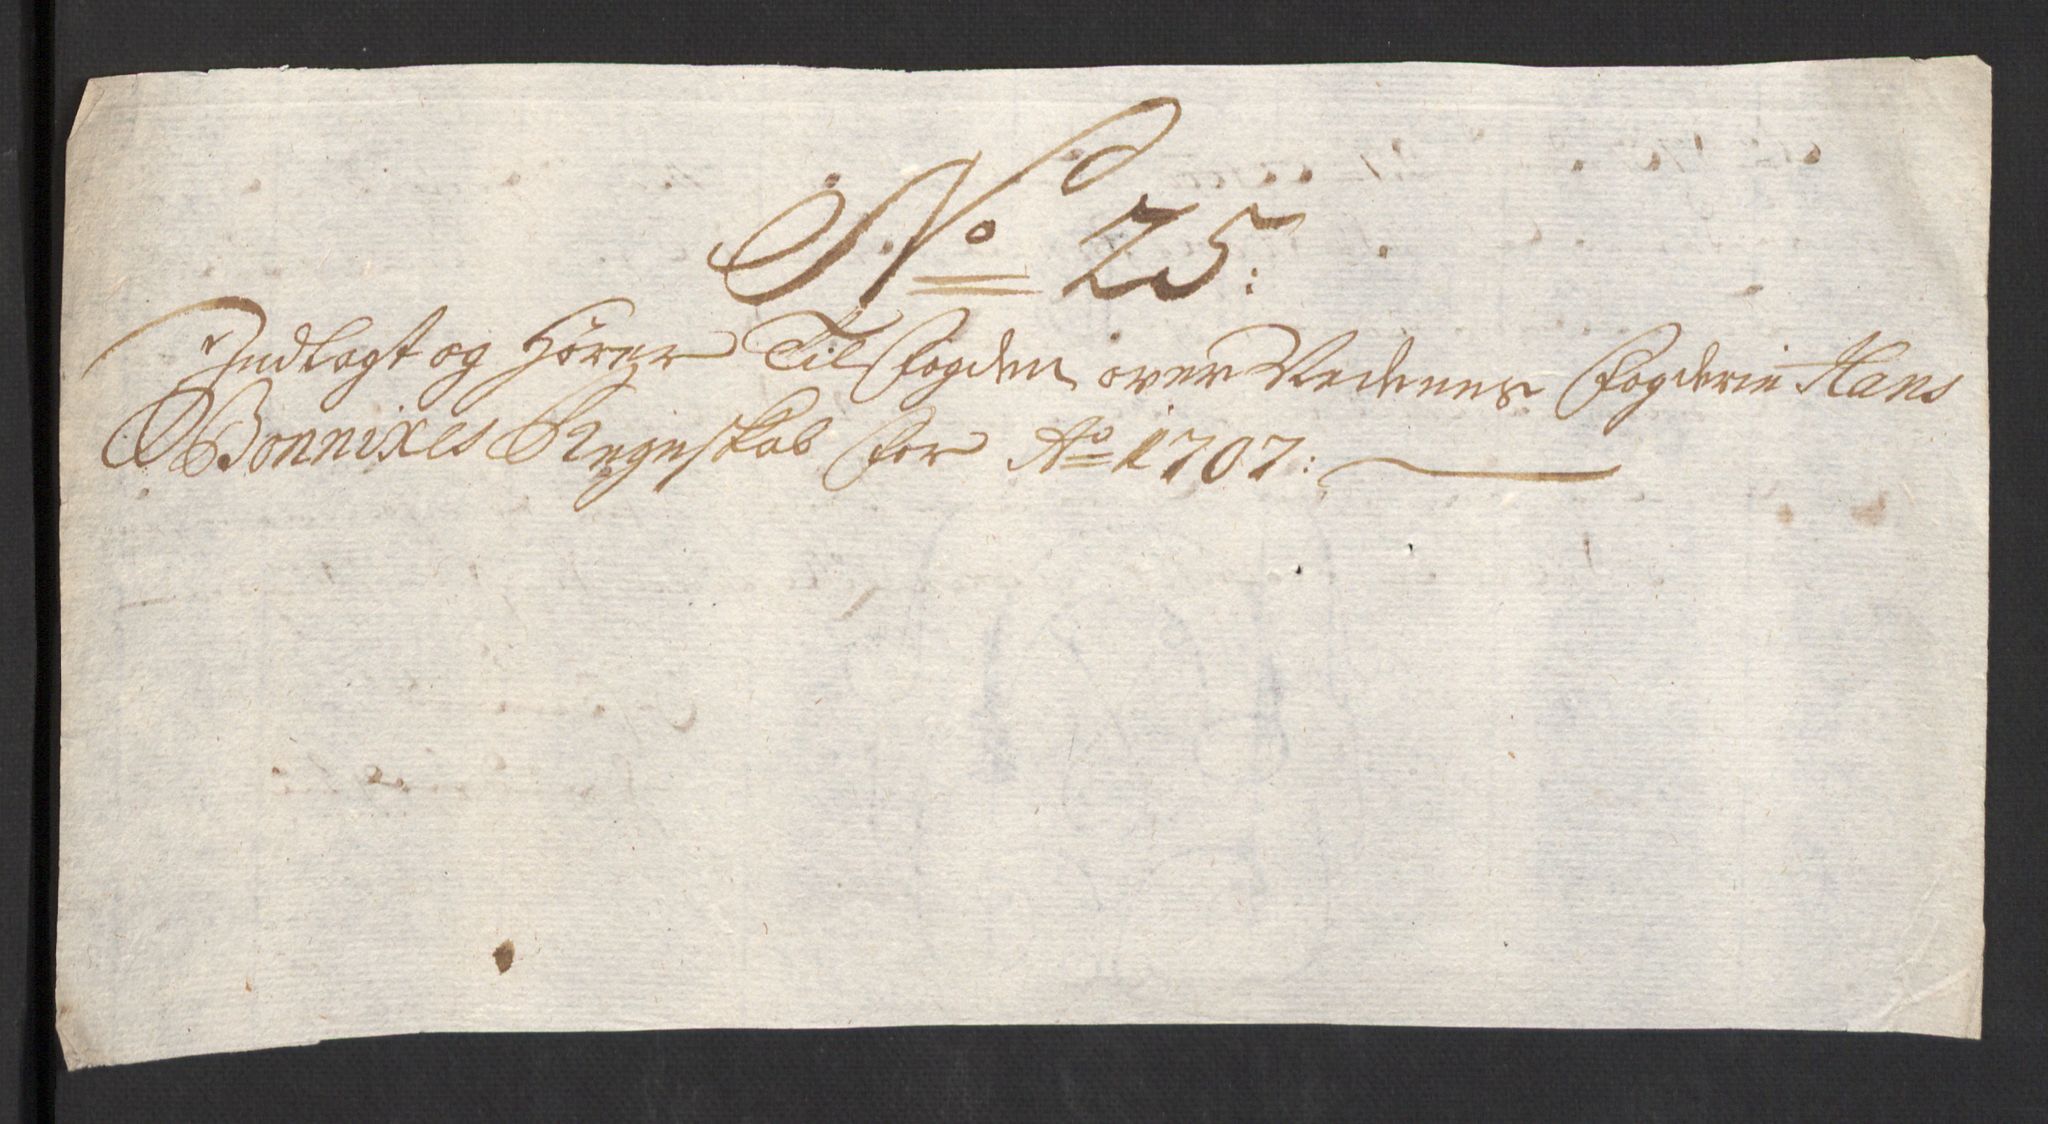 No 25:
Indlagt og Hörer Til Fogden over Nedenes Fogderie Hans
Bonnixes Regnskab for Ao 1707: